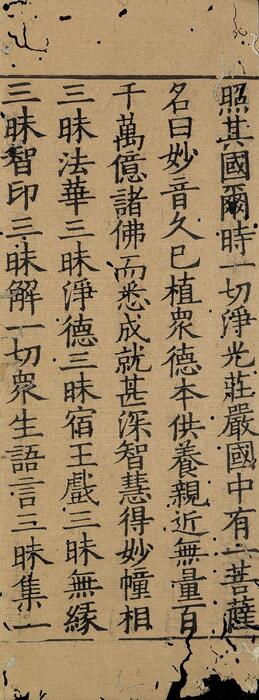 照其國爾時一切淨光莊嚴國中有一菩薩
名曰妙音久已植衆德本供養親近無量百
千萬億諸佛而悉成就甚深智慧得妙幢相
三昧法華三昧淨德三昧宿王戲三昧無緣
三昧智印三昧解一切衆生語言三昧集一